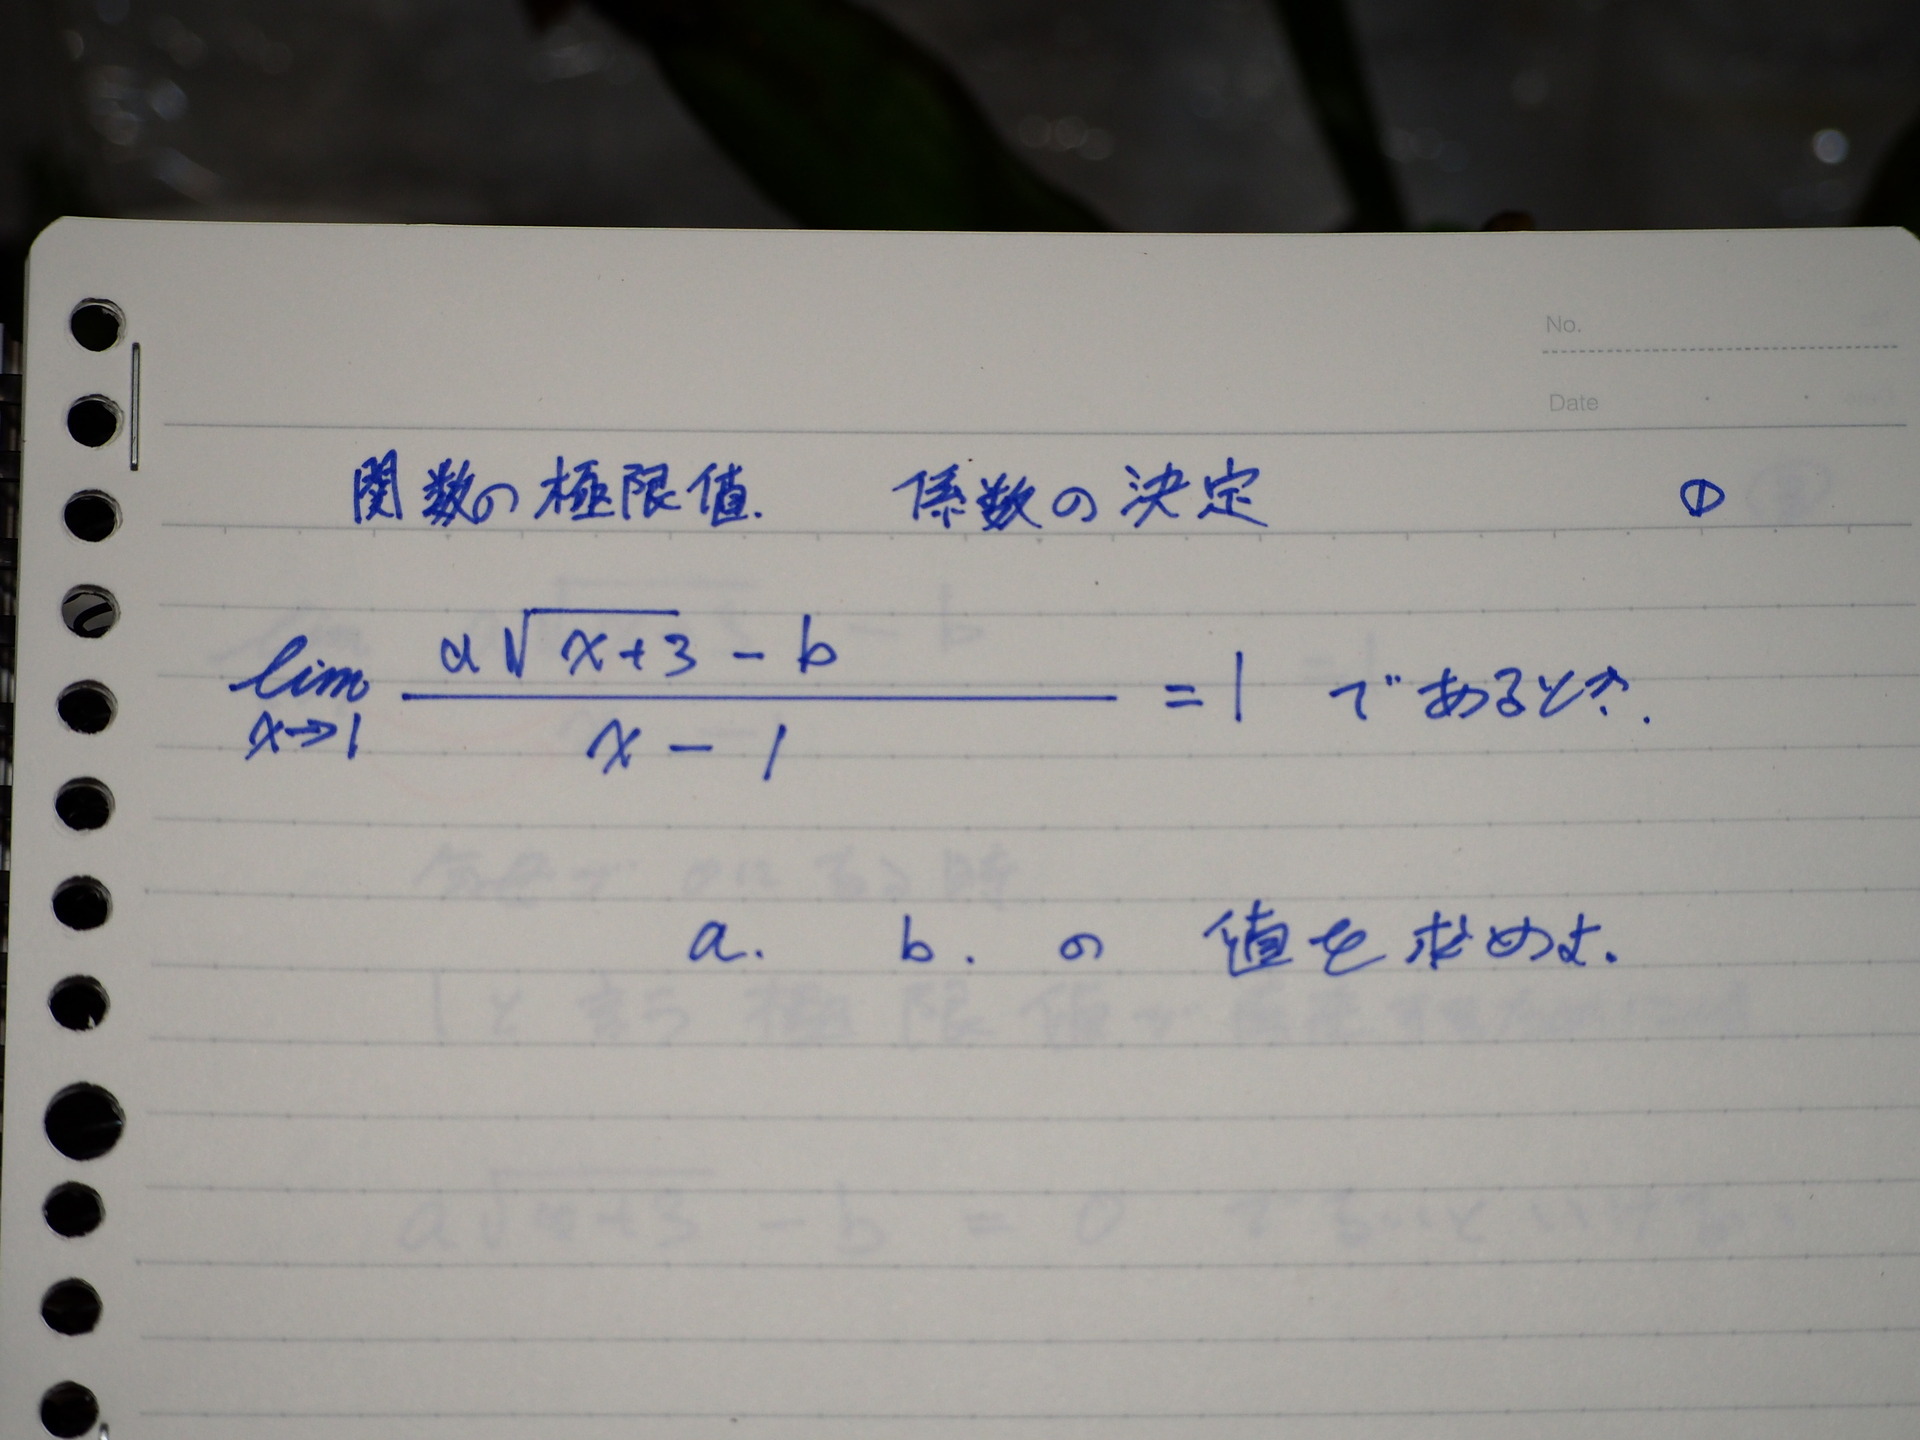 No.
Date
関数の極限値. 係数の決定 ①
lim x→1 (a√(x+3) - b)/(x - 1) = 1 であるとき.
a. b. の 値を求めよ.